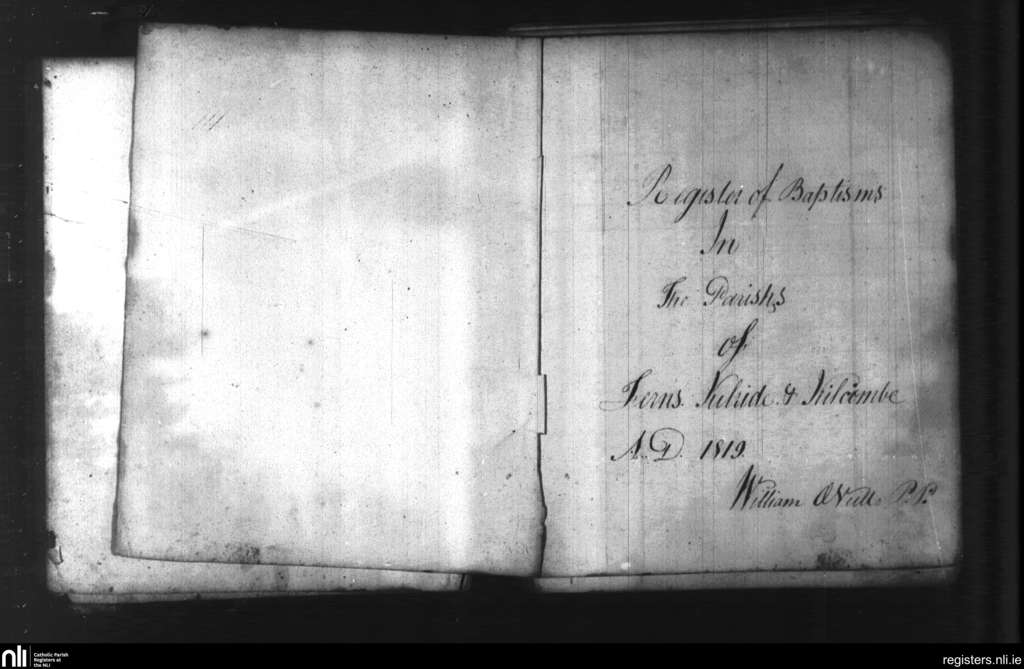 Register of Baptisms
In
The Parishs
of
Ferns. Kilride & Kilcombe
A. D. 1819.
William P. P.
nli
Catholic Parish
Registers at
the NLI
registers.nli.ie